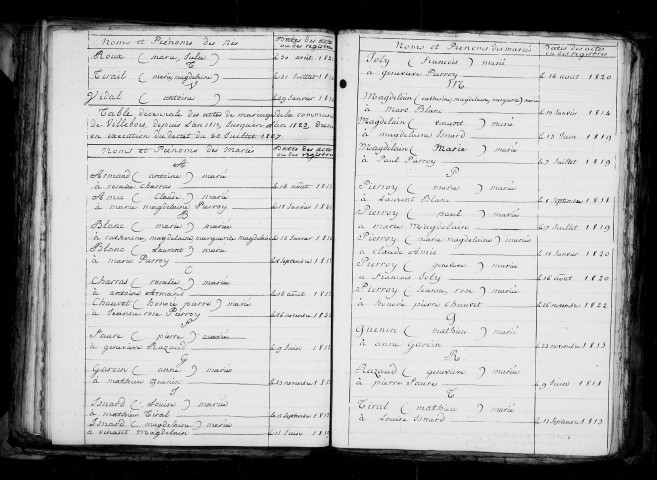 Noms et Prénoms des Nés
Dates des actes ou des registres
Roux ( marie, Julie )
le 20 avril 182
T
Tirail ( marie, magdelaine )
le 31 Juillet 18
V
Vidal ( antoine )
le 29 Janvier 18
Table décennale des actes de mariage de la commune
de Villebois, depuis L'an 1813, Jusqu'en L'an 1823, Dressé
en execution du decret du 20 Juillet 1807
Noms et Prénoms des Mariés
Dates des actes ou des registres
A
Armand ( antoine ) marié
à rosalie Charras
le 16 août 181
Amic ( Claude ) marié
à marie magdelaine Pierroy
le 18 Janvier 1820
B
Blanc ( marc ) marié
à catherine, magdelaine, marguerite magdelain
le 10 Janvier 181
Blanc ( Laurent ) marié
à marie Pierroy
le 8 Septembre 181
C
Charras ( rosalie ) mariée
à antoine Armand
le 16 août 181
Chauvet ( honoré pierre ) marié
à Jeanne rose Pierroy
le 26 novembre 1822
F
Faure ( pierre ) marié
à geneviève Ruzaud
le 9 Juin 181
G
Garcin ( anne ) mariée
à mathieu Guenin
le 23 novembre 181
I
Isnard ( Louise ) mariée
à mathieu Tiral
le 12 Septembre 181
Isnard ( magdelaine ) mariée
à vincent Magdelain
le 13 Juin 181
Noms et Prénoms des mariés
Dates des actes ou des registres
Joly ( francois ) marié
à geneviève Pierroy
le 16 août 1820
M
Magdelain ( catherine, magdelaine, marguerite ) mariée
à Marc Blanc
le 10 Janvier 1814
Magdelain ( vincent ) marié
à magdelaine Isnard
le 13 Juin 1819
Magdelain ( Marie ) mariée
à Paul Pierroy
le 7 Juillet 1819
P
Pierroy ( marie ) mariée
à Laurent Blanc
le 8 Septembre 1818
Pierroy ( paul ) marié
à marie Magdelain
le 7 Juillet 1819
Pierroy ( marie magdelaine ) mariée
à claude Amic
le 18 Janvier 1820
Pierroy ( geneviève ) mariée
à François Joly
le 16 août 1820
Pierroy ( Jeanne, rose ) mariée
à honoré pierre Chauvet
le 26 novembre 1822
G
Guenin ( mathieu ) marié
à anne Garcin
le 23 novembre 1815
R
Ruzaud ( geneviève ) mariée
à pierre Faure
le 9 Juin 1818
T
Tiral ( mathieu ) marié
à Louise Isnard
le 12 Septembre 1813